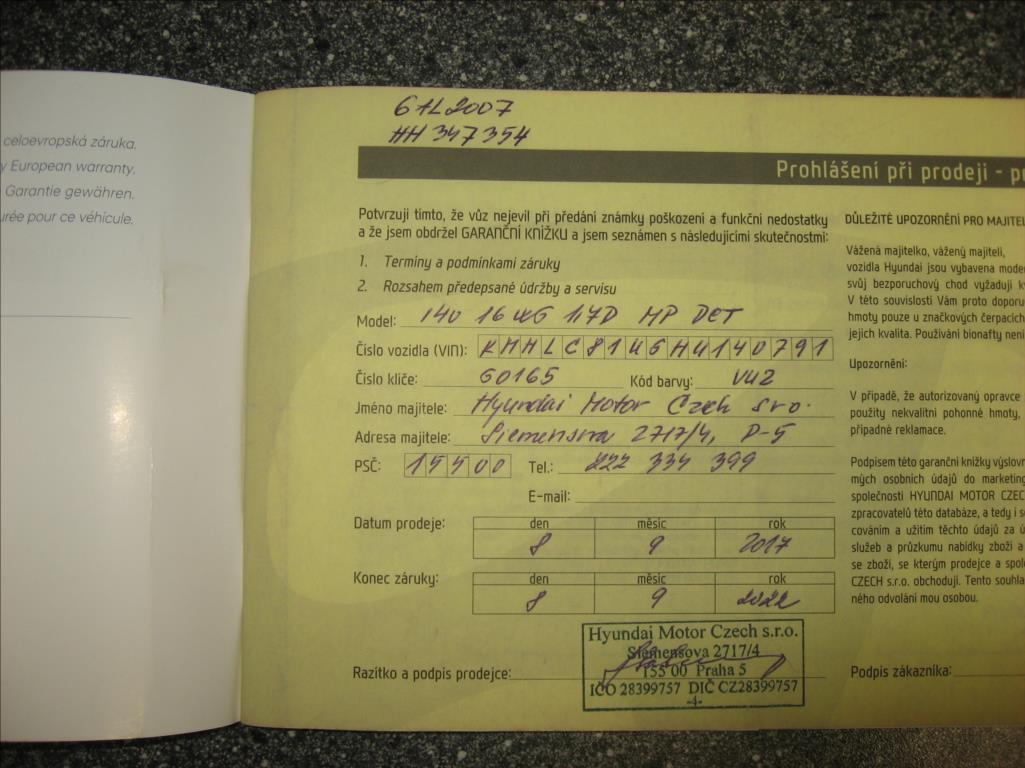 celoevropská záruka.
y European warranty.
Garantie gewähren.
urée pour ce véhicule.
61L2007
HH 347354
Prohlášení při prodeji - p
Potvrzuji tímto, že vůz nejevil při předání známky poškození a funkční nedostatky
a že jsem obdržel GARANČNÍ KNÍŽKU a jsem seznámen s následujícími skutečnostmi:
1. Termíny a podmínkami záruky
2. Rozsahem předepsané údržby a servisu
Model: 140 16 WG 1,7D MP DCT
Číslo vozidla (VIN): KMHLC81UGHU140791
Číslo klíče: G0165 Kód barvy: VU2
Jméno majitele: Hyundai Motor Czech s.r.o.
Adresa majitele: Siemensova 2717/4, P-5
PSČ: 15500 Tel.: 222 334 399
E-mail:
Datum prodeje: den měsíc rok
8 9 2017
Konec záruky: den měsíc rok
8 9 2022
Razítko a podpis prodejce:
Hyundai Motor Czech s.r.o.
Siemensova 2717/4
155 00 Praha 5
IČO 28399757 DIČ CZ28399757
-4-
DŮLEŽITÉ UPOZORNĚNÍ PRO MAJITEL
Vážená majitelko, vážený majiteli,
vozidla Hyundai jsou vybavena moder
svůj bezporuchový chod vyžadují k
V této souvislosti Vám proto doporu
hmoty pouze u značkových čerpacích
jejich kvalita. Používání bionafty není
Upozornění:
V případě, že autorizovaný opravce
použity nekvalitní pohonné hmoty,
případné reklamace.
Podpisem této garanční knížky výslovn
mých osobních údajů do marketing
společnosti HYUNDAI MOTOR CZEC
zpracovatelů této databáze, a tedy i s
cováním a užitím těchto údajů za ú
služeb a průzkumu nabídky zboží a
se zboží, se kterým prodejce a spole
CZECH s.r.o. obchodují. Tento souhla
ného odvolání mou osobou.
Podpis zákazníka: